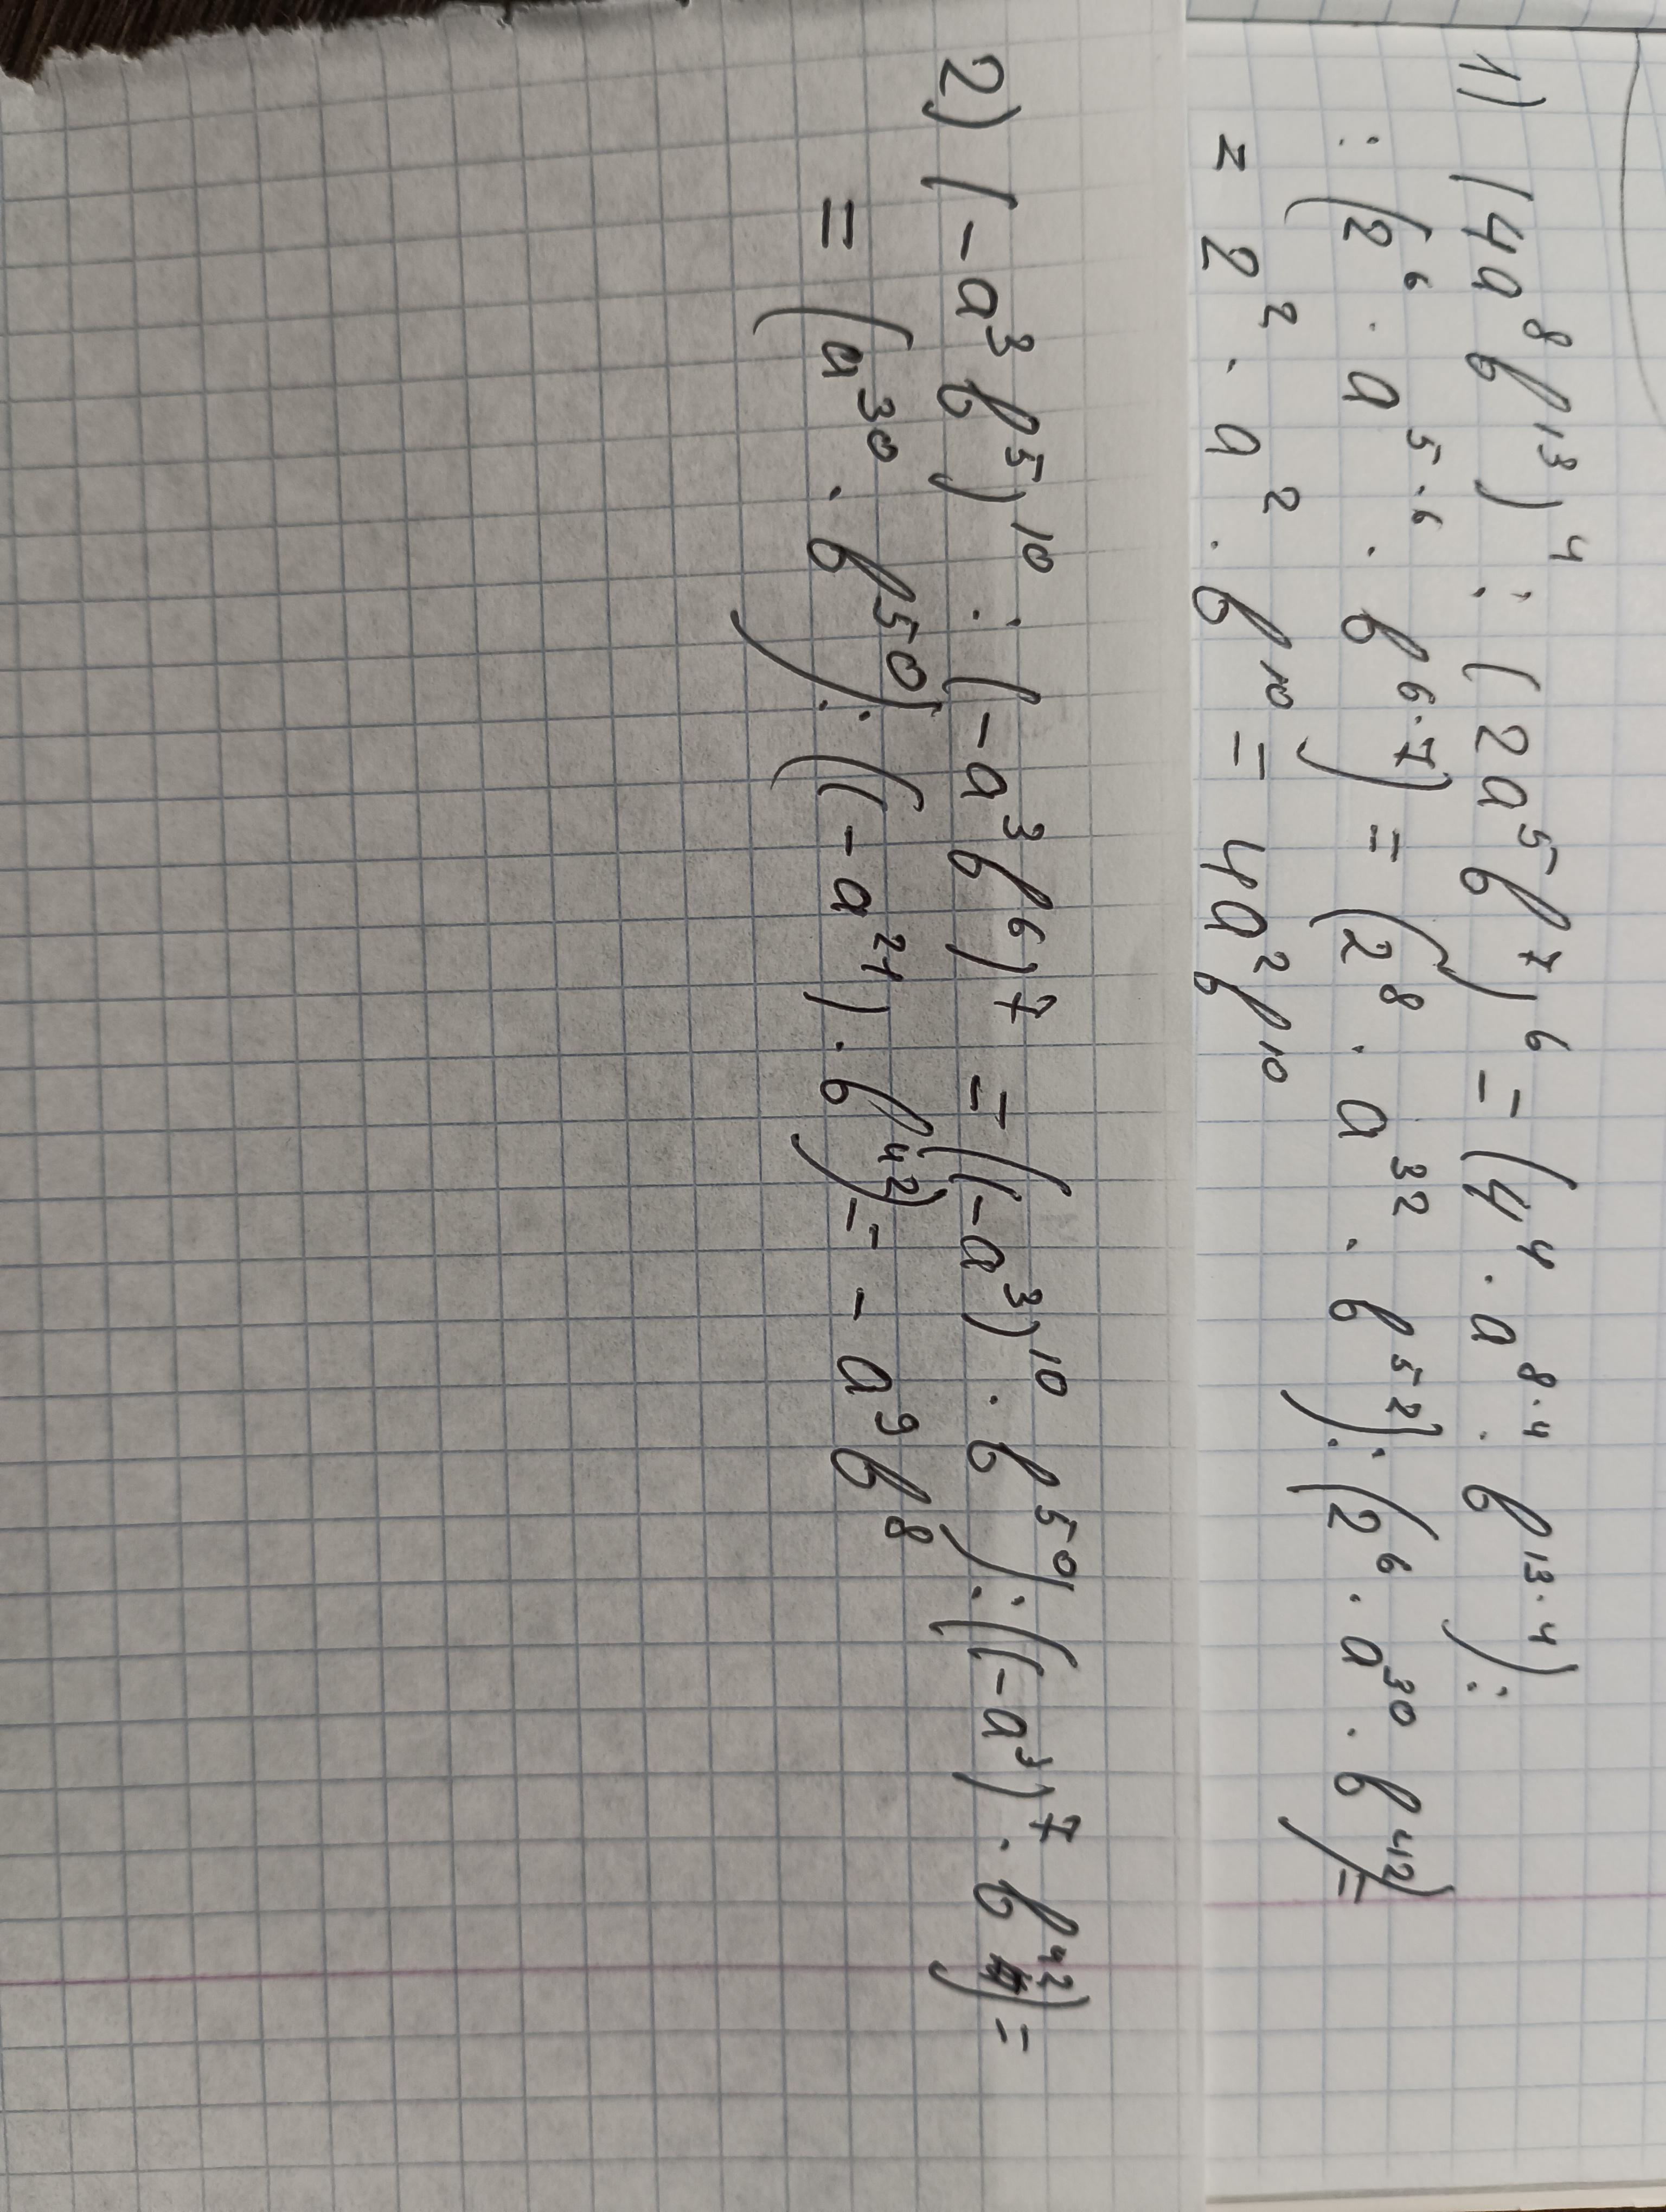 1) (4a⁸b¹³)⁴ : (2a⁵b⁷)⁶ = (4⁴ · a⁸·⁴ · b¹³·⁴) :
: (2⁶ · a⁵·⁶ · b⁶·⁷) = (2⁸ · a³² · b⁵²) : (2⁶ · a³⁰ · b⁴²) =
= 2² · a² · b¹⁰ = 4a²b¹⁰
2) (-a³b⁵)¹⁰ : (-a³b⁶)⁷ = ((-a³)¹⁰ · b⁵⁰) : ((-a³)⁷ · b⁴²) =
= (a³⁰ · b⁵⁰) : ((-a²¹) · b⁴²) = - a⁹b⁸